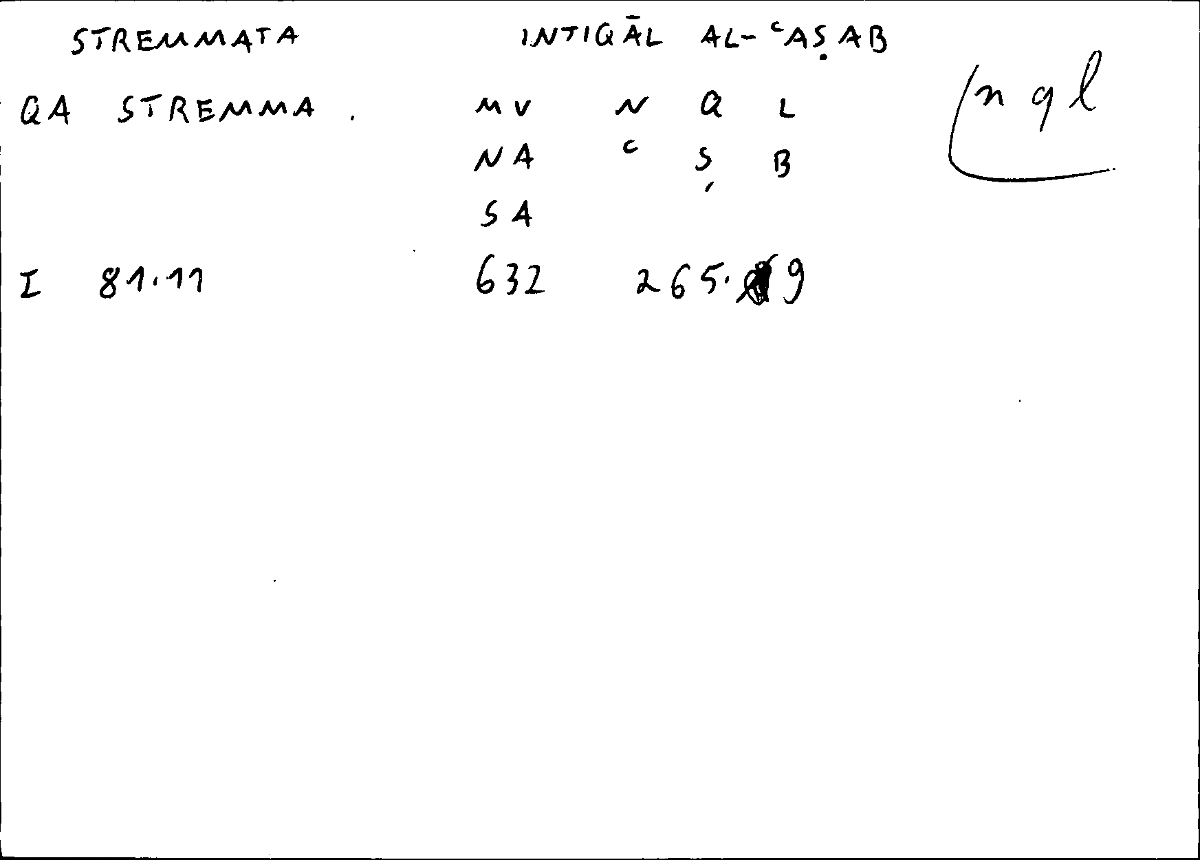 STREMMATA INTIQĀL AL-ʿAṢAB
QA STREMMA . MV N Q L nql
NA ʿ Ṣ B
SA
I 81.11 632 265.9